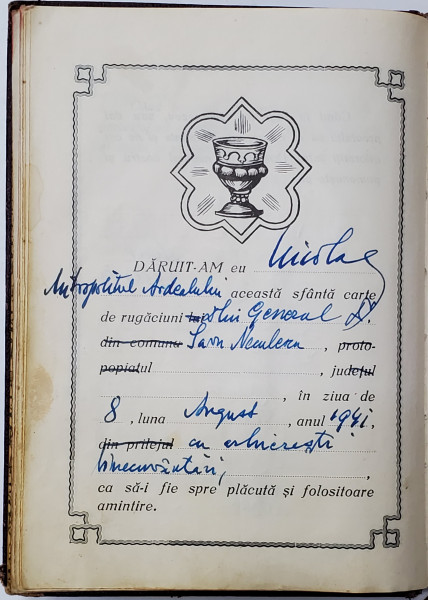 DĂRUIT-AM eu Nicolae
Mitropolitul Ardealului această sfântă carte
de rugăciuni D-lui General
din comuna , proto-
popiatul , județul
, în ziua de
8 , luna August , anul 1941.
din prilejul cu arhierești
binecuvântări,
ca să-i fie spre plăcută și folositoare
amintire.